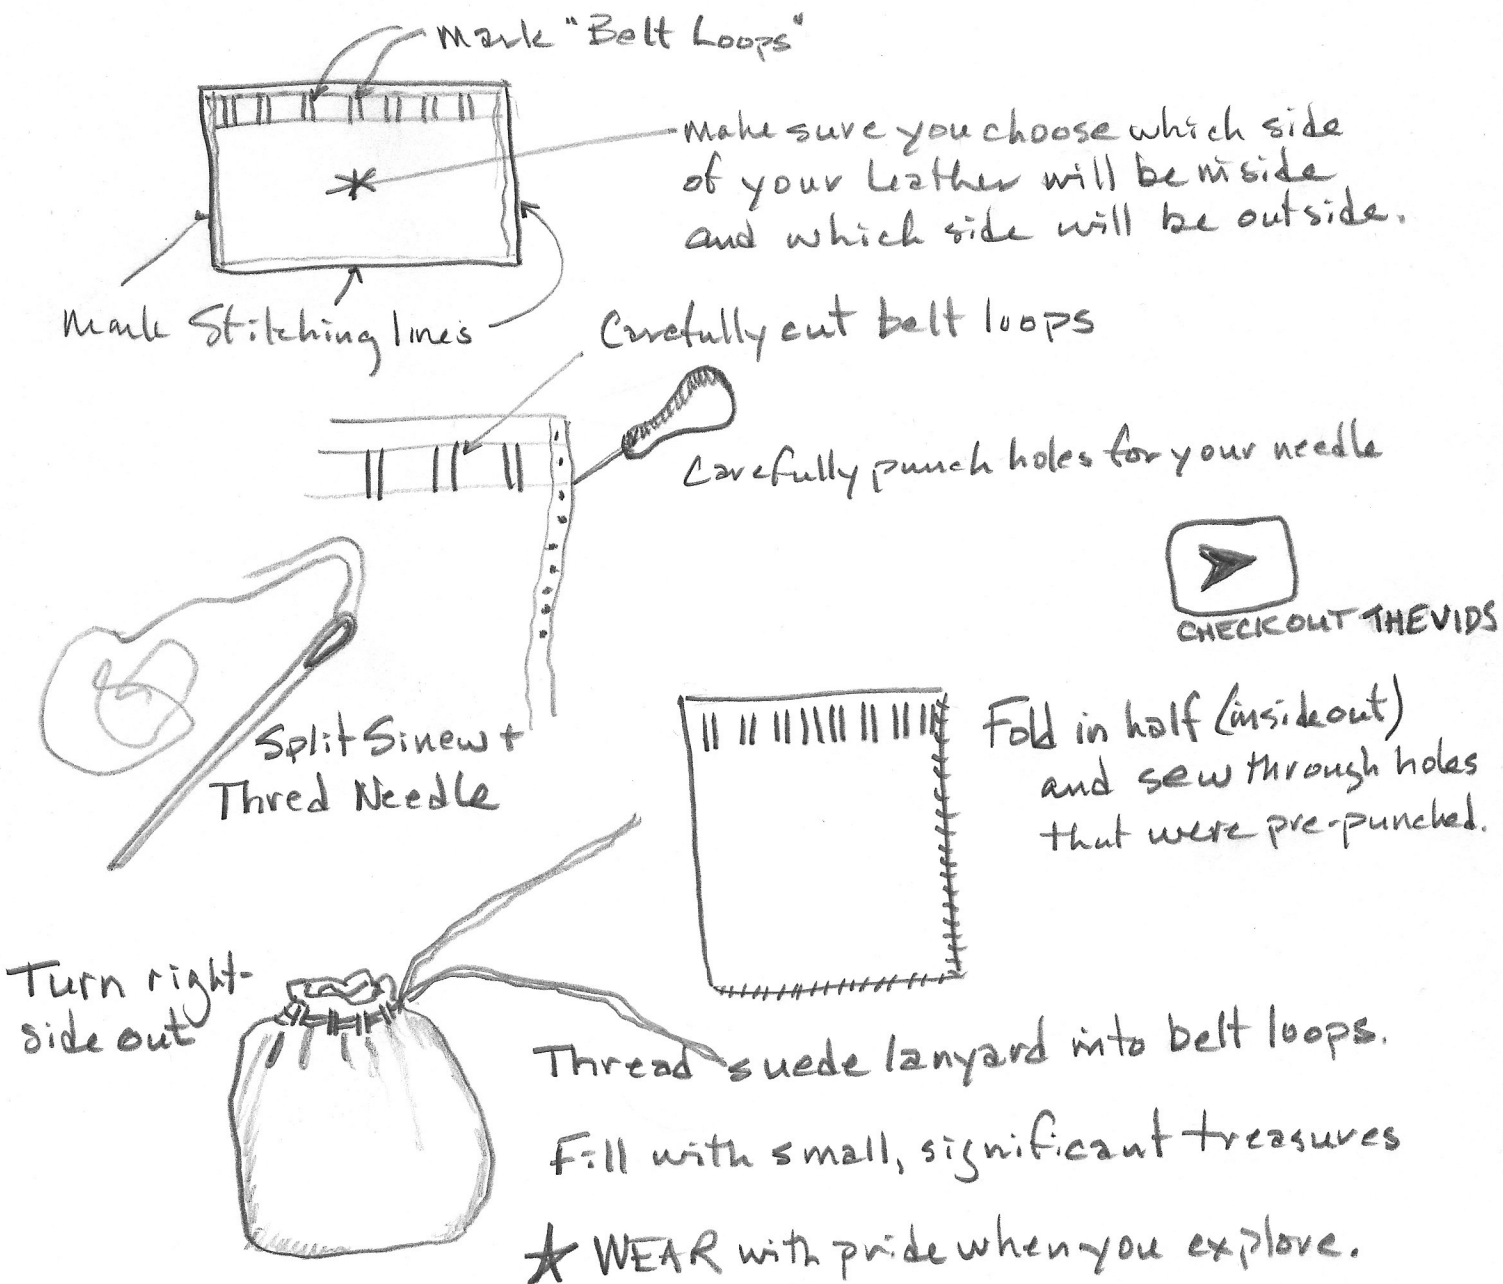 Mark "Belt Loops"
Make sure you choose which side
of your leather will be inside
and which side will be outside.
Mark Stitching lines
Carefully cut belt loops
Carefully punch holes for your needle
CHECKOUT THE VIDS
Split Sinew +
Thred Needle
Fold in half (insideout)
and sew through holes
that were pre-punched.
Turn right-
side out
Thread suede lanyard into belt loops.
Fill with small, significant treasures
★ WEAR with pride when you explore.